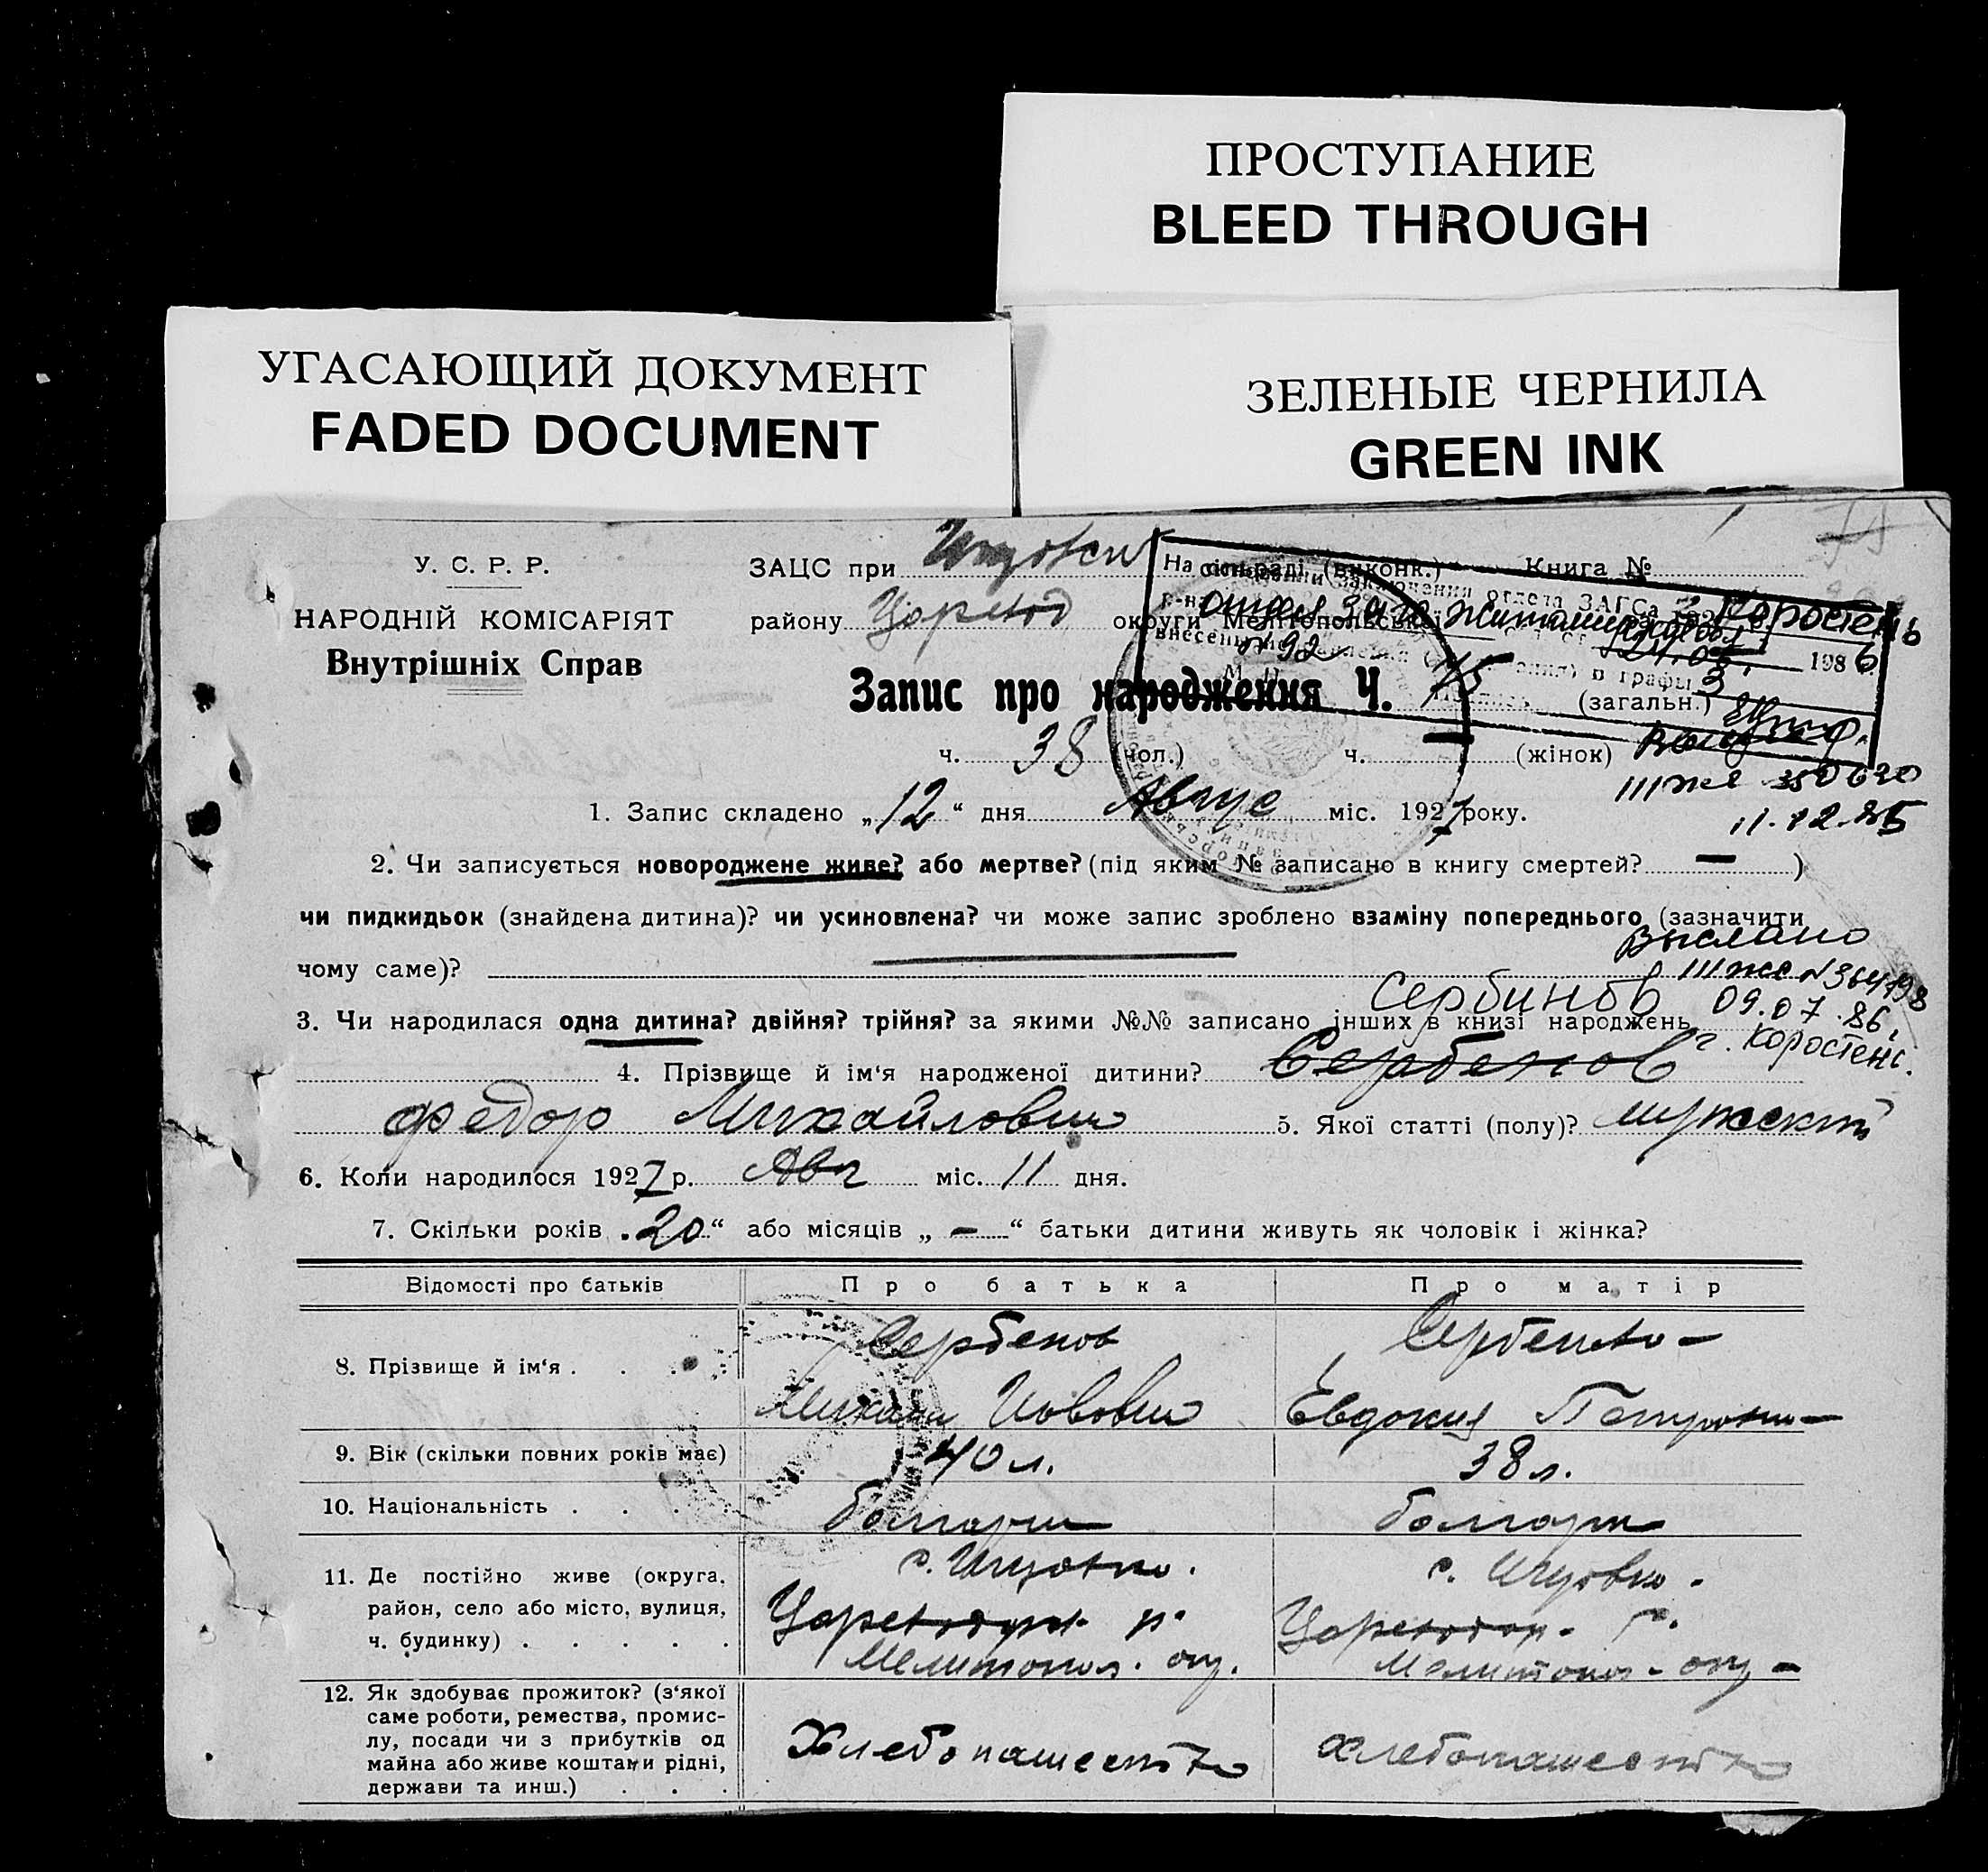 ПРОСТУПАНИЕ
BLEED THROUGH
УГАСАЮЩИЙ ДОКУМЕНТ
FADED DOCUMENT
ЗЕЛЕНЫЕ ЧЕРНИЛА
GREEN INK
У. С. Р. Р.
НАРОДНІЙ КОМІСАРІЯТ
Внутрішніх Справ
ЗАЦС при сільраді (виконк.) Книга №
району округи Мелітопольської
На основании заключения отдела ЗАГСа
Коростень
21.05. 1986
внесены в графы 3
Запис про народження Ч. 75 (загальн.)
ч. 38 (чол.) ч. — (жінок)
350620
11.12.85
1. Запис складено „12“ дня Авгус міс. 1927 року.
2. Чи записується новороджене живе? або мертве? (під яким № записано в книгу смертей? — )
чи пидкидьок (знайдена дитина)? чи усиновлена? чи може запис зроблено взаміну попереднього (зазначити
чому саме)?
Выслано
N 364198
09.07.86
г. Коростень.
Сербинов
3. Чи народилася одна дитина? двійня? трійня? за якими №№ записано інших в книзі народжень
4. Прізвище й ім'я народженої дитини? Сербенов
Федор Михайлович 5. Якої статті (полу)? мужской
6. Коли народилося 1927 р. Авг міс. 11 дня.
7. Скільки років „20“ або місяців „ — “ батьки дитини живуть як чоловік і жінка?
Відомості про батьків Про батька Про матір
8. Прізвище й ім'я . . . .
Сербенов
Михаил Иовович
Евдокия
9. Вік (скільки повних років має) 40 л. 38 л.
10. Національність . . . . болгарин болгарк
11. Де постійно живе (округа,
район, село або місто, вулиця,
ч. будинку) . . . . .
Мелитопол. окр.
Мелитопол. окр
12. Як здобуває прожиток? (з'якої
саме роботи, ремества, промис-
лу, посади чи з прибутків од
майна або живе коштами рідні,
держави та инш.) . . .
Хлебопашество
хлебопашество